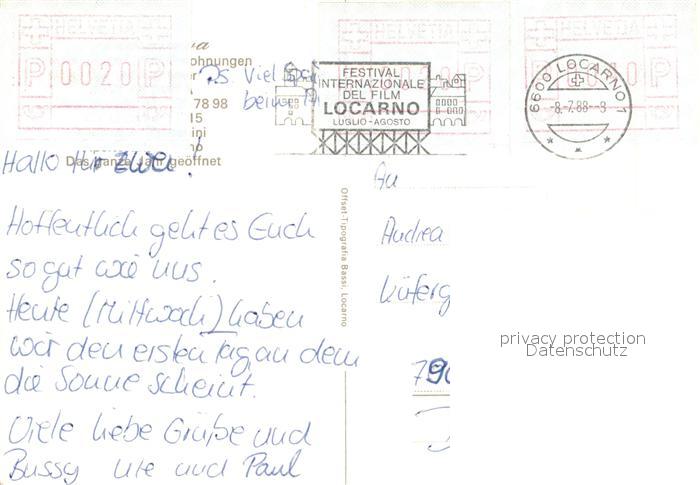 HELVETIA
P 0020 P
HELVETIA
HELVETIA
P
ohnungen
PS Viel
beim
78 98
15
ini
Das ganze Jahr geöffnet
FESTIVAL
INTERNAZIONALE
DEL FILM
LOCARNO
LUGLIO - AGOSTO
6600 LOCARNO 1
-8.-7.88--8
Hallo Ihr zwei!
Hoffentlich geht es Euch
so gut wie uns.
Heute (Mittwoch) haben
wir den ersten Tag, an dem
die Sonne scheint.
Viele liebe Grüße und
Bussy Ute und Paul
Offset-Tipografia Bassi, Locarno
An
Andrea
Küferg
790
privacy protection
Datenschutz